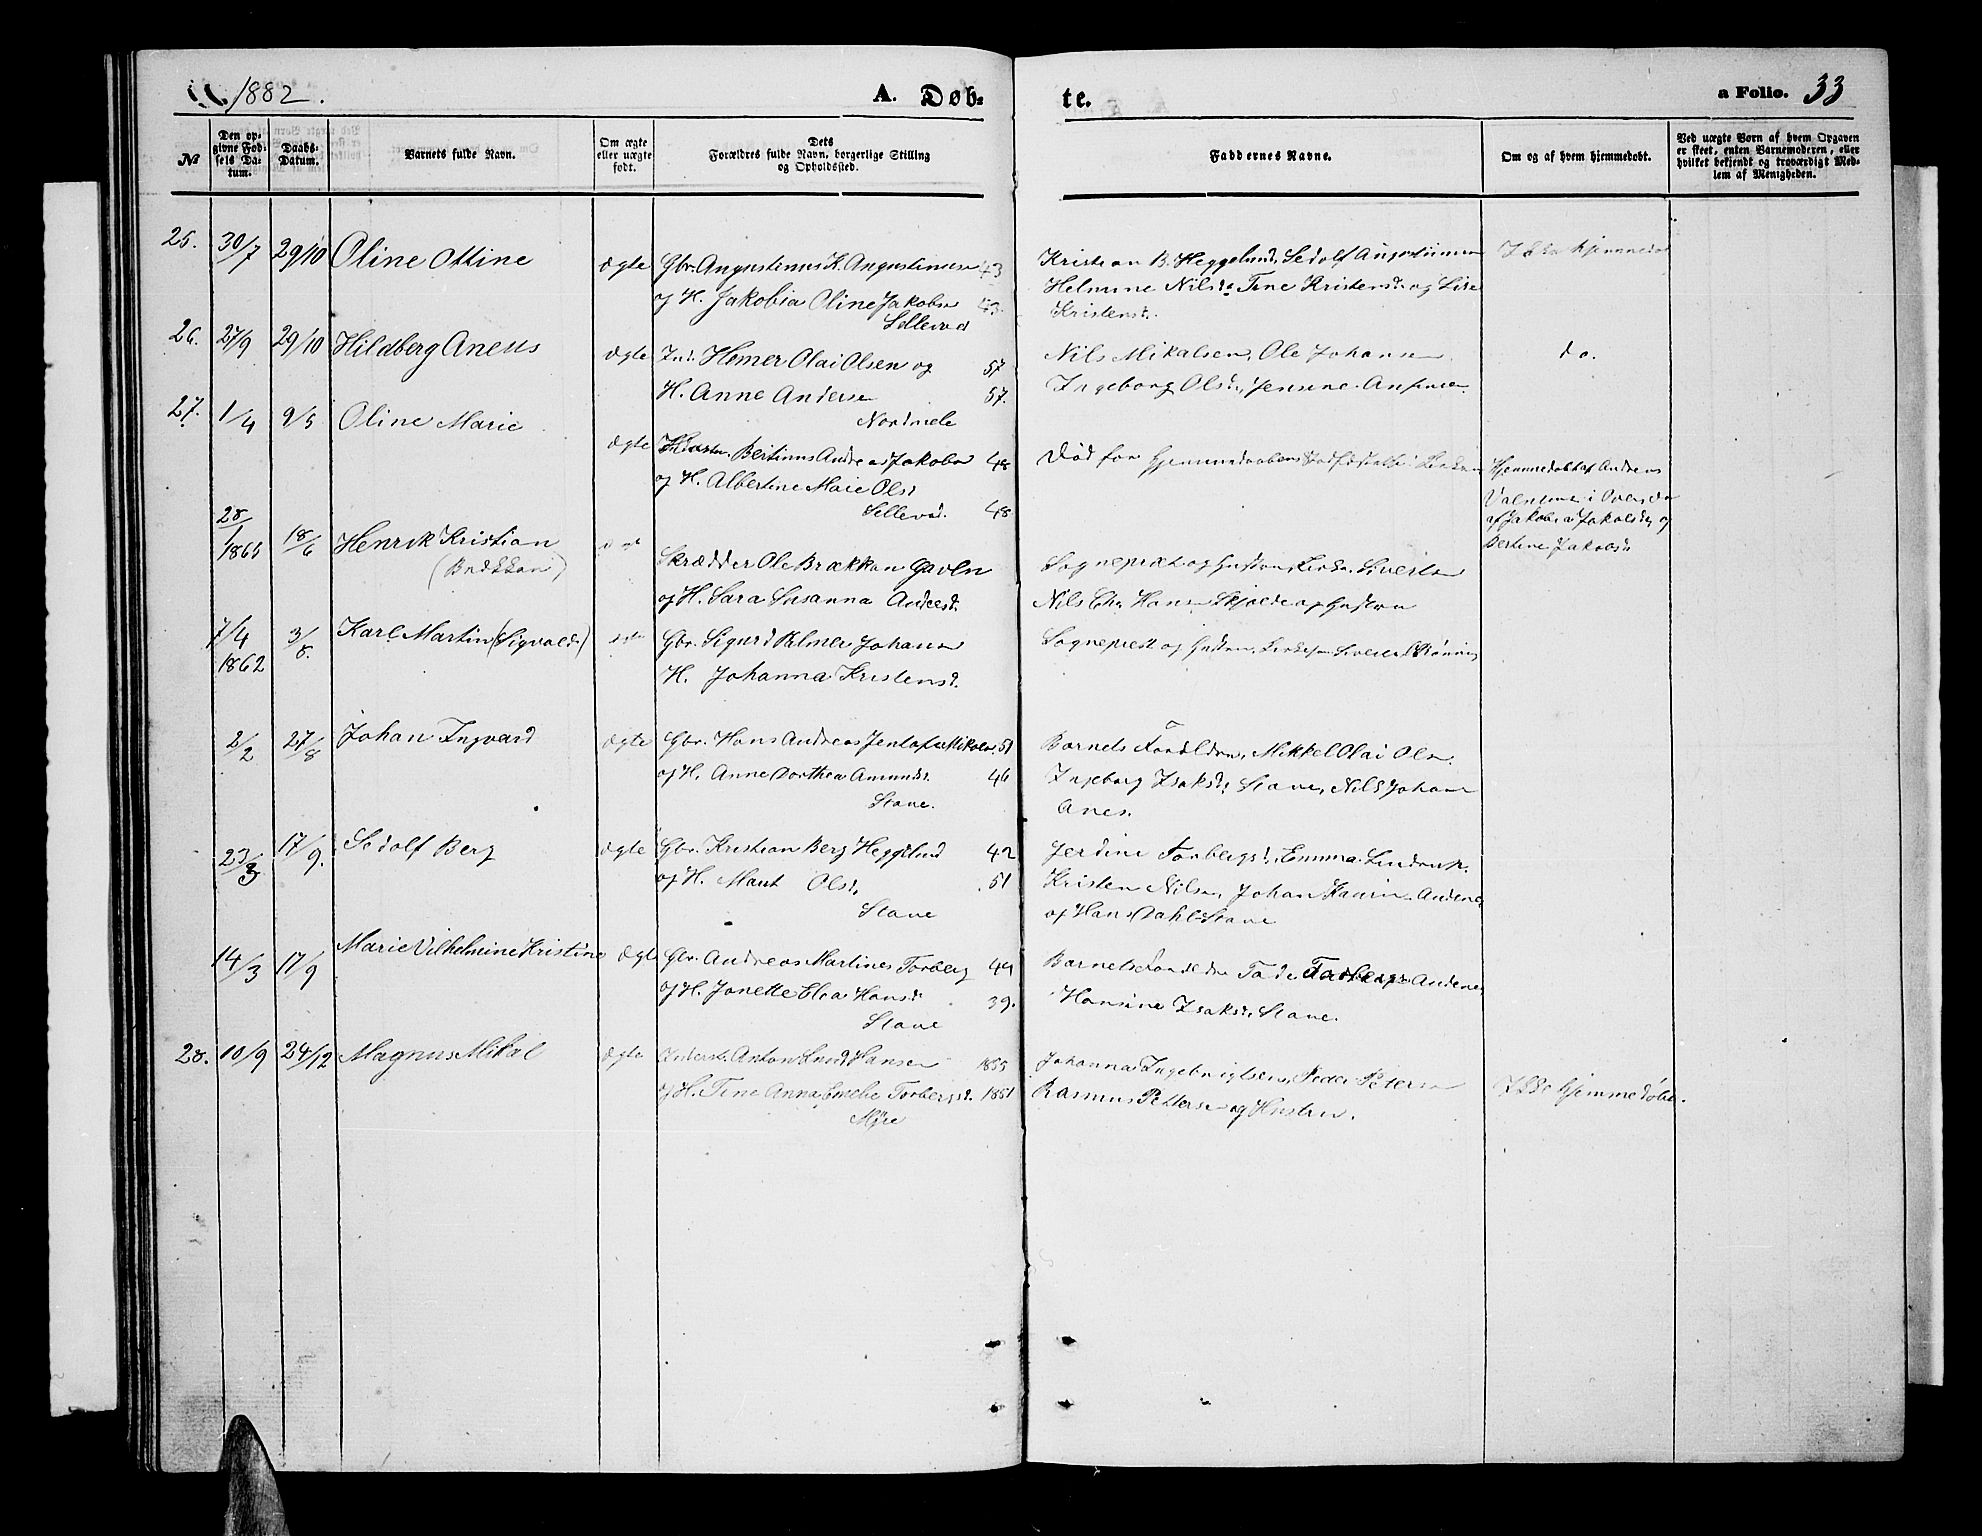 1882.
A. Døb-
te.
a Folio. 33
№
Den op-
givne Fød-
sels Da-
tum.
Daabs-
Datum.
Barnets fulde Navn.
Om ægte
eller uægte
født.
Dets
Forældres fulde Navn, borgerlige Stilling
og Opholdssted.
Faddernes Navne.
Om og af hvem hjemmedøbt.
Ved uægte Børn af hvem Opgaven
er skeet, enten Barnemoderen, eller
hvilket bekjendt og troværdigt Med-
lem af Menigheden.
25. 30/7 29/10 Oline Ottine ægte Gbr. Augustinus K. Augustinusen 43
og H. Jakobia Oline Jakobs 43.
Sellevod
Kristian B. Heggelund, Sedolf Augustinusen
Helmine Nilsd. Tine Kristensd. og Lise
Kristensd.
Ikke hjemmedøbt
26. 27/9 29/10 Hildberg Aneus ægte Ind. Hemer Olai Olsen og 57
H. Anne Anderse 57.
Nordmele
Nils Mikalsen, Ole Johansen
Ingeborg Olsd., Jensine
do.
27. 1/4 9/5 Oline Marie ægte Bertinus Andreas Jakobs 48
og H. Albertine Marie Olsd 48
Sellevod.
Død før Hjemmedaabens Stadfæstelse i Kirken
Hjemmedøbt af Andreas
i
af Jakobia Jakobsd. og
Bertine Jakobsd.
28/1 1865 18/6 Henrik Kristian
(Brækkan)
ægt
Skrædder Ole Brækkan Gavlen
og H. Sara Susanna Andersd.
Sogneprest og Hustru, Kirkes. Sivertsen
Nils Chr. Hansen Skjolde og Hustru
7/4 1862 3/8. Karl Martin (Sigvald) ægte Gbr. Sigurd Palmer Johansen
H. Johanna Kristensd.
Sogneprest og Hustru, Sivert Rønning
2/2 27/8 Johan Ingvard ægte Gbr. Hans Andreas Jentoft Mikals 51
og H. Anne Dorthea Amundsd. 46
Stave.
Barnets Forældre, Mikkel Olai Olsn.
Ingeborg Isaksd., Stave, Nils Johan
Anes.
23/3 17/9. Sedolf Berg ægte Gbr. Kristian Berg Heggelund 42
og H. Marit Olsd. 51
Stave
Jerdine Torbergsd., Emma
Kristen Nilsen, Johan Kaarin Andenes
og Hans Dahl Stave
14/3 17/9 Marie Vilhelmine Kristine ægte Gbr. Andreas Martines Torberg 44
og H. Jonette Elea Hansd 39.
Stave
Barnets Forældre Andenes
Hansine Isaksd. Stave.
28. 10/9 24/12 Magnus Mikal ægte Anton Knud Hansen 1855
og H. Tine Anna Emelie Torbergsd. 1851
Myre
Johanna Ingebrigtsen, Peder Petersen
Rasmus Pettersen og Hustru.
Ikke hjemmedøbt.